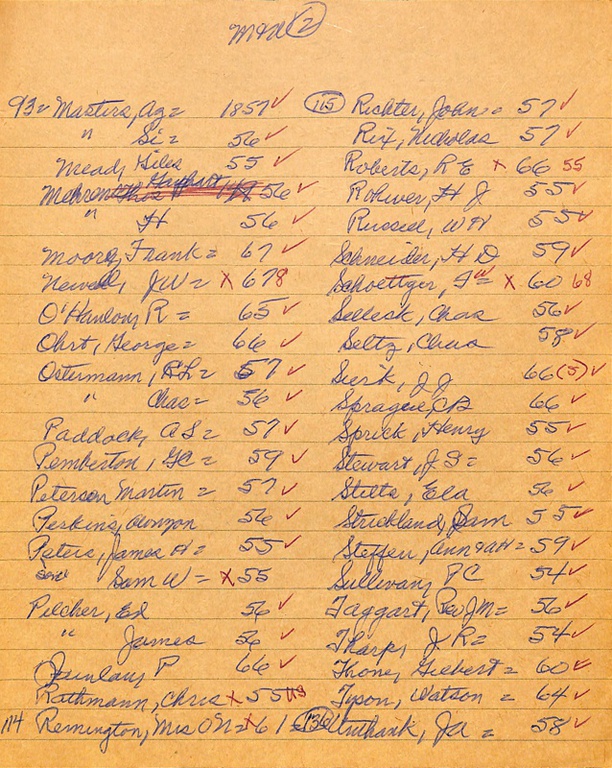 M&M (2)
93= Masters, Ag= 1857 ✓
" Si= 56 ✓
Mead, Giles 55 ✓
Mehrens 56 ✓
" H 56 ✓
Moore, Frank= 67 ✓
Newell, JW= x 678
O'Hanlon, R= 65 ✓
Ohrt, George= 66 ✓
Ostermann, RL= 57 ✓
" Chas= 56 ✓
Paddock, AS= 57 ✓
Pemberton, GC= 59 ✓
Peterson Martin= 57 ✓
Perkins, Alonzon 56 ✓
Peters, James H= 55 ✓
Sam W= x 55
Pilcher, Ed 56 ✓
" James 56 ✓
Quinlan, P 66 ✓
Rathmann, Chris x 55
114 Remington, Mrs ON= x 61=
(115) Richter, John= 57 ✓
Rix, Nicholas 57 ✓
Roberts, RE x 66 55
Rohwer, H J 55 ✓
Russell, WH 55 ✓
Schneider, H D 59 ✓
Schoettger, x 60 68
Selleck, Chas 56 ✓
Seltz, Chas 58 ✓
Sierk, JJ 66 (5) ✓
Sprague, CB 66 ✓
Sprick, Henry 55 ✓
Stewart, J S= 56 ✓
Stilts, Ela 56 ✓
Strickland, Sam 55 ✓
Steffen, Ann & AH= 59 ✓
Sullivan, PC 54 ✓
Taggart, Rev JM= 56 ✓
Tharp, J R= 54 ✓
Thone, Giebert= 60 ✓
Tyson, Watson= 64 ✓
(136) Unthank, Ja= 58 ✓